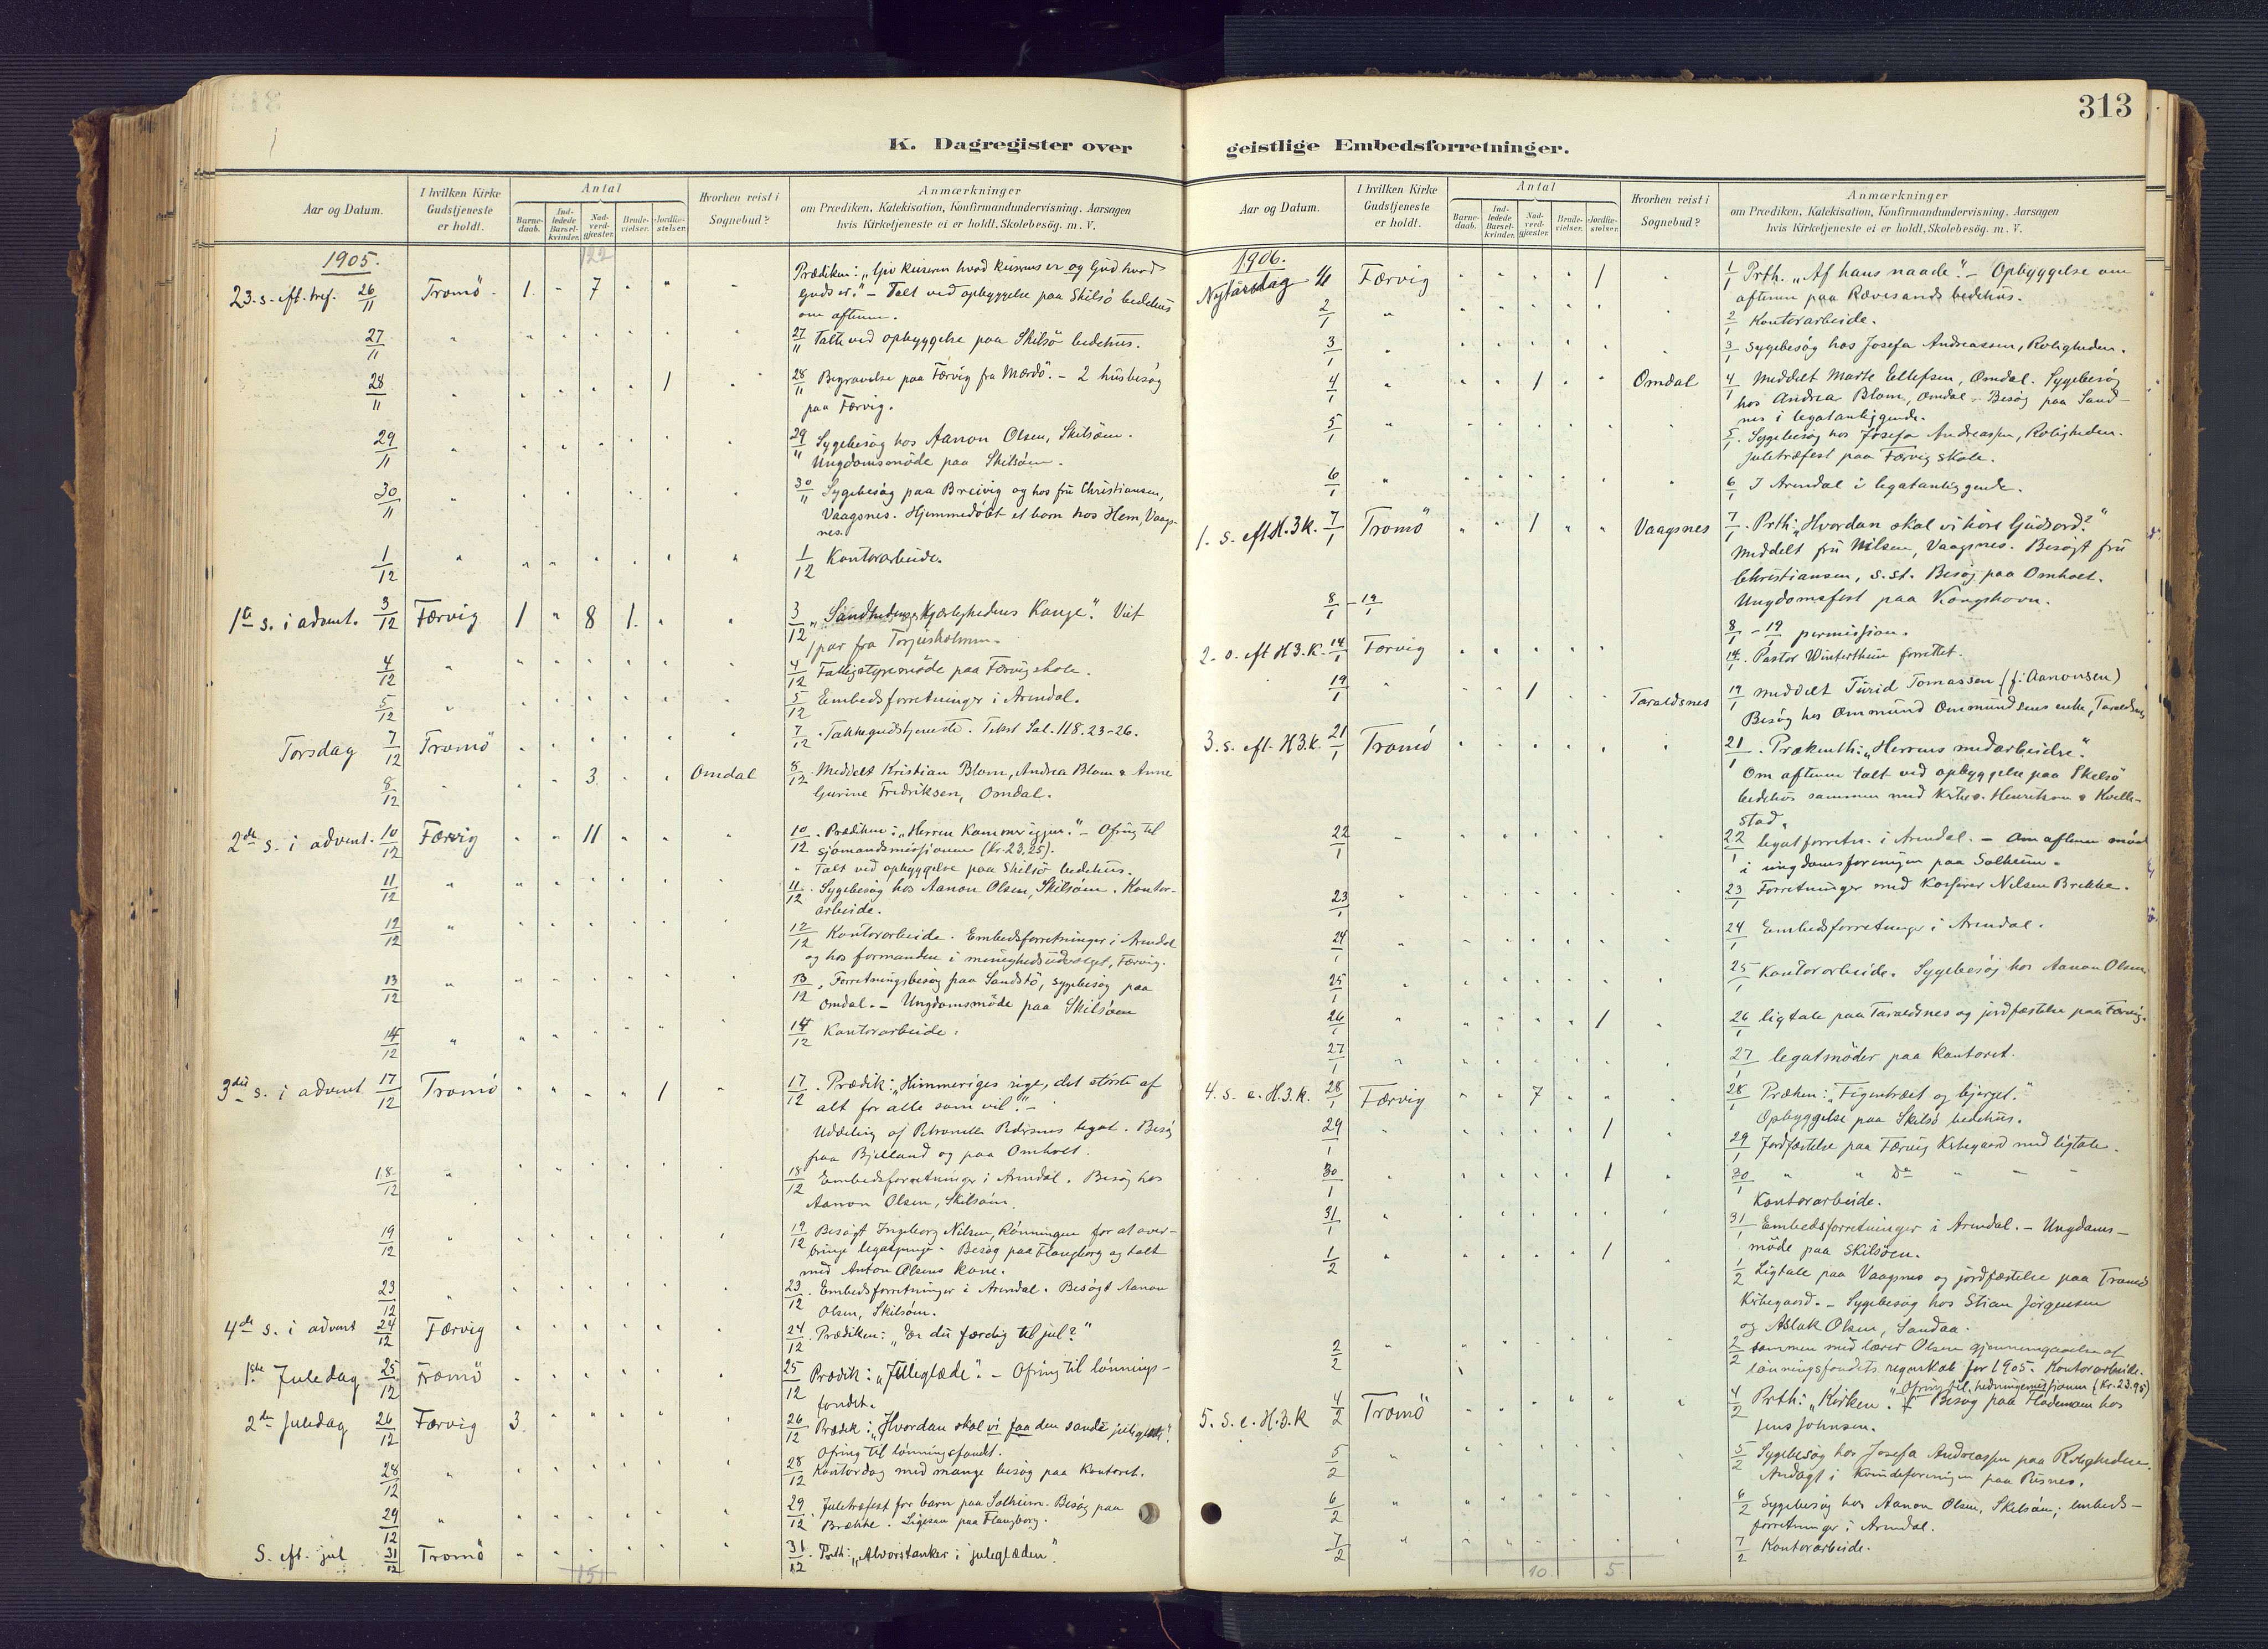 313
K. Dagregister over
Aar og Datum.
I hvilken Kirke Gudstjeneste er holdt.
Antal
Barne-daab.
Ind-ledede Barsel-kvinder.
Nad-verd-gjæster.
Brude-vielser.
Jordfæ-stelser.
Hvorhen reist i Sognebud?
Anmærkninger
om Prædiken, Katekisation, Konfirmandundervisning, Aarsagen
hvis Kirketjeneste ei er holdt, Skolebesög. m. V.
122
1905.
23. s. eft. tref. 26/11 Tromö 1. " 7 " " " Prædiken: "Giv keiseren hvad keiserens er og Gud hvad
Guds er." – Talt ved opbyggelse paa Skilsö bedehus
om aftenen.
27/11 " 27/11 Talte ved opbyggelse paa Skilsö bedehus.
28/11 " 1 28/11 Begravelse paa Færvig fra Mærdö. – 2 husbesög
paa Færvig.
29/11 " 29/11 Sygebesög hos Aanon Olsen, Skilsöen.
Ungdomsmöde paa Skilsöen.
30/11 " 30/11 Sygebesög paa Breivig og hos fru Christiansen,
Vaagsnes. Hjemmedöbt et barn hos Hem, Vaags-
nes.
1/12 " 1/12 Kontorarbeide.
1te s. i advent. 3/12 Færvig 1 " 8 1. " " 3/12 "Sandhedens og Kjærlighedens Konge". Viet
1 par fra Torjusholmen.
4/12 " 4/12 Fattigstyremöde paa Færvig skole.
5/12 " 5/12 Embedsforretninger i Arendal.
Torsdag 7/12 Tromö 7/12 Takkegudstjeneste. Tekst Sal. 118.23-26.
8/12 " 3 Omdal 8/12 Meddelt Kristian Blom, Andrea Blom & Anne
Gurine Fredriksen, Omdal.
2de s. i advent. 10/12 Færvig 11 10/12 Prædiken: "Herren kommer igjen." – Ofring til
sjömandsmissionen (Kr. 23.25).
" Talt ved opbyggelse paa Skilsö bedehus.
11/12 " 11/12 Sygebesög hos Aanon Olsen, Skilsöen. Kontor-
arbeide.
12/12 " 12/12 Kontorarbeide. Embedsforretninger i Arendal
og hos formanden i menighedsudvalget, Færvig.
13/12 " 13/12 Forretningsbesög paa Sandstö, sygebesög paa
Omdal. – Ungdomsmöde paa Skilsöen
14/12 " 14/12 Kontorarbeide.
3die s. i advent 17/12 Tromö 1 17/12 Prædik: "Himmeriges rige, det störste af
alt for alle som vil." –
Uddeling af Petronelle Pedersens legat. Besög
paa Bjelland og paa Omholt.
18/12 " 18/12 Embedsforretninger i Arendal. Besög hos
Aanon Olsen, Skilsöen.
19/12 " 19/12 Besögt Ingeborg Nilsen, Rönningen for at over-
bringe legatpenge. Besög paa Flangborg og talt
med Anton Olsens kone.
23/12 " 23/12 Embedsforretninger i Arendal. Besögt Aanon
Olsen, Skilsöen.
4de s. i advent 24/12 Færvig 24/12 Prædiken: "Er du færdig til jul?"
1ste Juledag 25/12 Tromö 25/12 Prædik: "Juleglæde". – Ofring til lönnings-
fondet.
2den Juledag 26/12 Færvig 3. 26/12 Prædik: "Hvordan skal vi faa den sande juleglæde".
Ofring til lönningsfondt.
28/12 " 28/12 Kontordag med mange besög paa Kontoret.
29/12 " 29/12 Juletræfest for barn paa Solheim. Besög paa
Brække. Ligesaa paa Flangborg.
S. eft. jul 31/12 Tromö 31/12 Prth: "Alvorstanker i juleglæden".
151
geistlige Embedsforretninger.
Aar og Datum.
I hvilken Kirke Gudstjeneste er holdt.
Antal
Barne-daab.
Ind-ledede Barsel-kvinder.
Nad-verd-gjæster.
Brude-vielser.
Jordfæ-stelser.
Hvorhen reist i Sognebud?
Anmærkninger
om Prædiken, Katekisation, Konfirmandundervisning, Aarsagen
hvis Kirketjeneste ei er holdt, Skolebesög. m. V.
1906.
Nytårsdag 1/1 Færvig 1 1/1 Prth. "Af hans naade". – Opbyggelse om
aftenen paa Rævesands bedehus.
2/1 " 2/1 Kontorarbeide.
3/1 " 3/1 Sygebesög hos Josefa Andreassen, Roligheden.
4/1 " 1 Omdal 4/1 Meddelt Marte Ellefsen, Omdal. Sygebesög
hos Andrea Blom, Omdal. Besög paa Sand-
nes i legatanliggende.
5/1 " 5/1 Sygebesög hos Josefa Andreassen, Roligheden.
Juletræfest paa Færvig skole.
6/1 " 6/1 I Arendal i legatanliggende.
1. s. eft H.3.K. 7/1 Tromö 1 Vaagsnes 7/1 Prth: "Hvordan skal vi höre Guds ord?"
Meddelt fru Nilsen, Vaagsnes. Besögt fru
Christiansen, s. st. Besög paa Omholt.
Ungdomsfest paa Kongshavn.
8/1 – 19/1 8/1 – 19/1 permission.
2. s. eft H.3.K. 14/1 Færvig 14/1 Pastor Winterthun forrettet.
19/1 " 1 Taraldsnes 19/1 Meddelt Turid Tomassen (f. Aanonsen)
Besög hos Ommund Ommundsens enke, Taraldsnes
3. s. eft. H.3.K. 21/1 Tromö 21/1 Præk.th: "Herrens medarbeidre".
Om aftenen talt ved opbyggelse paa Skilsö
bedehus sammen med Henriksen & Kvelle-
stad.
22/1 22/1 legatforretn. i Arendal. – Om aftenen möde
i ungdomsforeningen paa Solheim.
23/1 " 23/1 Forretninger med Kasserer Nilsen Brække.
24/1 " 24/1 Embedsforretninger i Arendal.
25/1 " 25/1 Kontorarbeide. Sygebesög hos Aanon Olsen
26/1 " 1 26/1 ligtale paa Taraldsnes og jordfæstelse paa Færvig.
27/1 " 27/1 legatmöder paa kontoret.
4. s. e. H.3.K. 28/1 Færvig 7 28/1 Præken: "Figentræet og bjerget."
Opbyggelse paa Skilsö bedehus.
29/1 " 1 29/1 Jordfæstelse paa Færvig Kirkegaard med ligtale.
30/1 " 1 30/1 " " Do " – –
Kontorarbeide.
31/1 " 31/1 Embedsforretninger i Arendal. – Ungdoms-
möde paa Skilsöen.
1/2 " 1 1/2 Ligtale paa Vaagsnes og jordfæstelse paa Tromö
Kirkegaard. – Sygebesög hos Stian Jörgensen
og Aslak Olsen, Sandaa.
2/2 " 2/2 Sammen med lærer Olsen gjennemgaaelse af
lönningsfondets regnskab for 1905. Kontorarbeide.
Ofring til hedningemissionen (Kr. 23.95)
5. s. e. H.3.K 4/2 Tromö 4/2 Prth: "Kirken". Besög paa Flademoen hos
Jens Johnsen.
5/2 " 5/2 Sygebesög hos Josefa Andreassen paa Roligheden.
Andagt i Kvindeforeningen paa Pusnes.
6/2 " 6/2 Sygebesög hos Aanon Olsen, Skilsöen; embeds-
forretninger i Arendal.
7/2 " 7/2 Kontorarbeide.
10 5